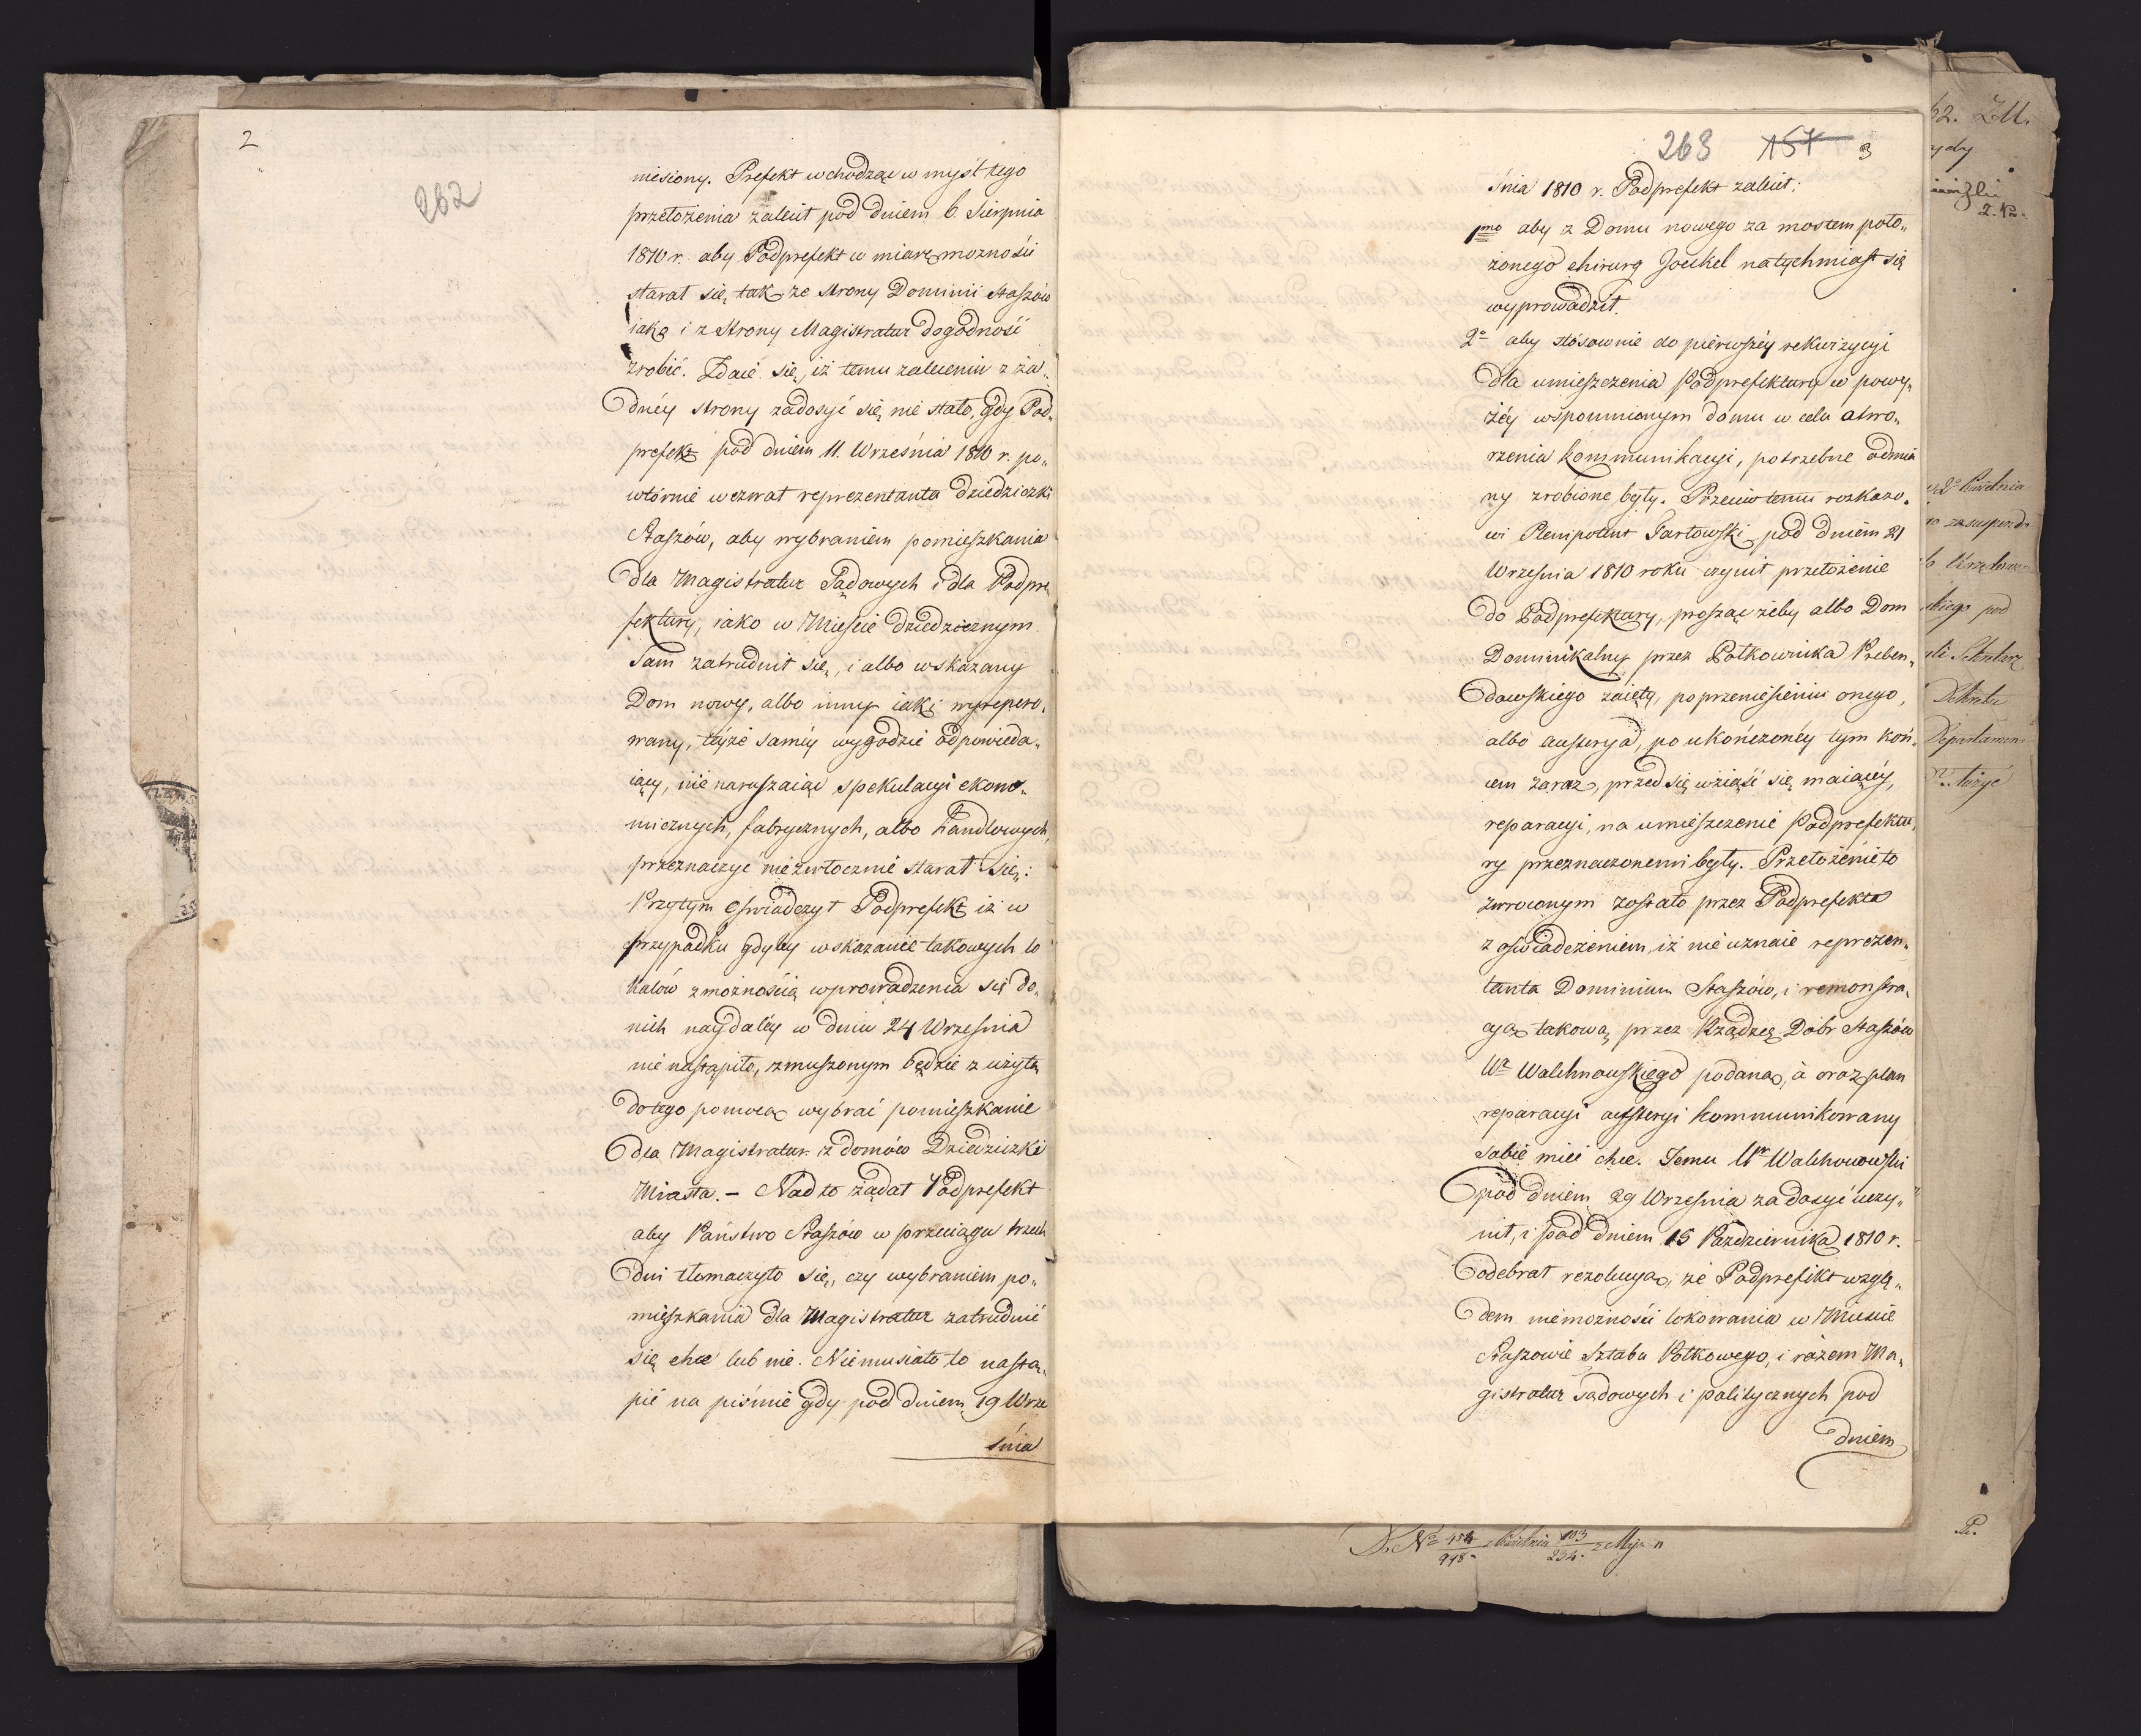 2
262
niesiony. Prefekt wchodząc w myśl tego
przełożenia zalecił pod dniem 6. Sierpnia
1810 r. aby Podprefekt w miarę możności
starał się, tak ze strony Dominii Staszów
iako i z Strony Magistratur dogodność
zrobić. Zdaie się, iż temu zaleceniu z ża„
dnéy strony zadosyć się nie stało, gdy Pod„
prefekt pod dniem 11. Września 1810 r. po„
wtórnie wezwał reprezentanta dziedziczki
Staszów, aby wybraniem pomieszkania
dla Magistratur Sądowych i dla Podpre„
fektury, iako w Mieście dziedzicznym
Sam zatrudnił się, i albo wskazany
Dom nowy, albo inny iaki wyrepero„
wany, téyże saméy wygodzie odpowieda„
iący, nie naruszaiąc spekulacyi ekono„
micznych, fabrycznych, albo handlowych,
przeznaczyć niezwłocznie starał się:
Przytym oświadczył Podprefekt iż w
przypadku gdyby wskazanie takowych lo
kalów z możnością wprowadzenia się do„
nich naydaléy w dniu 24 Września
nie nastąpiło, zmuszonym będzie z użytą
do tego pomocą wybrać pomieszkanie
dla Magistratur z domów Dziedziczki
Miasta. – Nadto żądał Podprefekt
aby Państwo Staszów w przeciągu trzech
dni tłomaczyło się, czy wybraniem po„
mieszkania dla Magistratur zatrudnić
się chce lub nie. Niemusiało to nastą„
pić na piśmie gdy pod dniem 19 Wrze
śnia
263 157 3
śnia 1810 r. Podprefekt zalecił:
1mo aby z Domu nowego za mostem poło„
żonego chirurg Joeckel natychmiast się
wyprowadził.
2o aby stósownie do pierwszéy rekwizycyi
dla umieszczenia Podprefektury w powy„
żéy wspomnionym domu w celu otwo„
rzenia kommunikacyi, potrzebne odmia
ny zrobione były. Przeciw temu rozkazo„
wi Plenipotent Jartowski pod dniem 21
Września 1810 roku czynił przełożenie
do Podprefektury, prosząc żeby albo Dom
Dominikalny przez Półkownika Preben„
dowskiego zaięty, po przeniesieniu onego,
albo austerya, po ukończonéy tym koń„
cem zaraz, przedsięwziąść się maiącéy,
reparacyi, na umieszczenie Podprefektu„
ry przeznaczonemi były. Przełożenie to
zwroconym zostało przez Podprefekta
z oświadczeniem, iż nie uznaie reprezen„
tanta Dominium Staszów, i remonstra„
cyą takową przez Rządzcę Dóbr Staszów
Wo Walchnowskiego podaną, a oraz plan
reparacyi austeryi kommunikowany
sobie mieć chce. Temu Ur Walchnowski
pod dniem 29 Września zadosyć uczy„
nił, i pod dniem 15 Października 1810 r.
odebrał rezolucyą, że Podprefekt wzglę„
dem niemożności lokowania w Mieście
Staszowie Sztabu Półkowego, i rázem Ma„
gistratur sądowych i politycznych pod
dniem
62. ZU.
2. K
Kwietnia
zasuspend
Urzędowe
skiego pod
Sekretarz
Dekretu
Departamen
złożyć